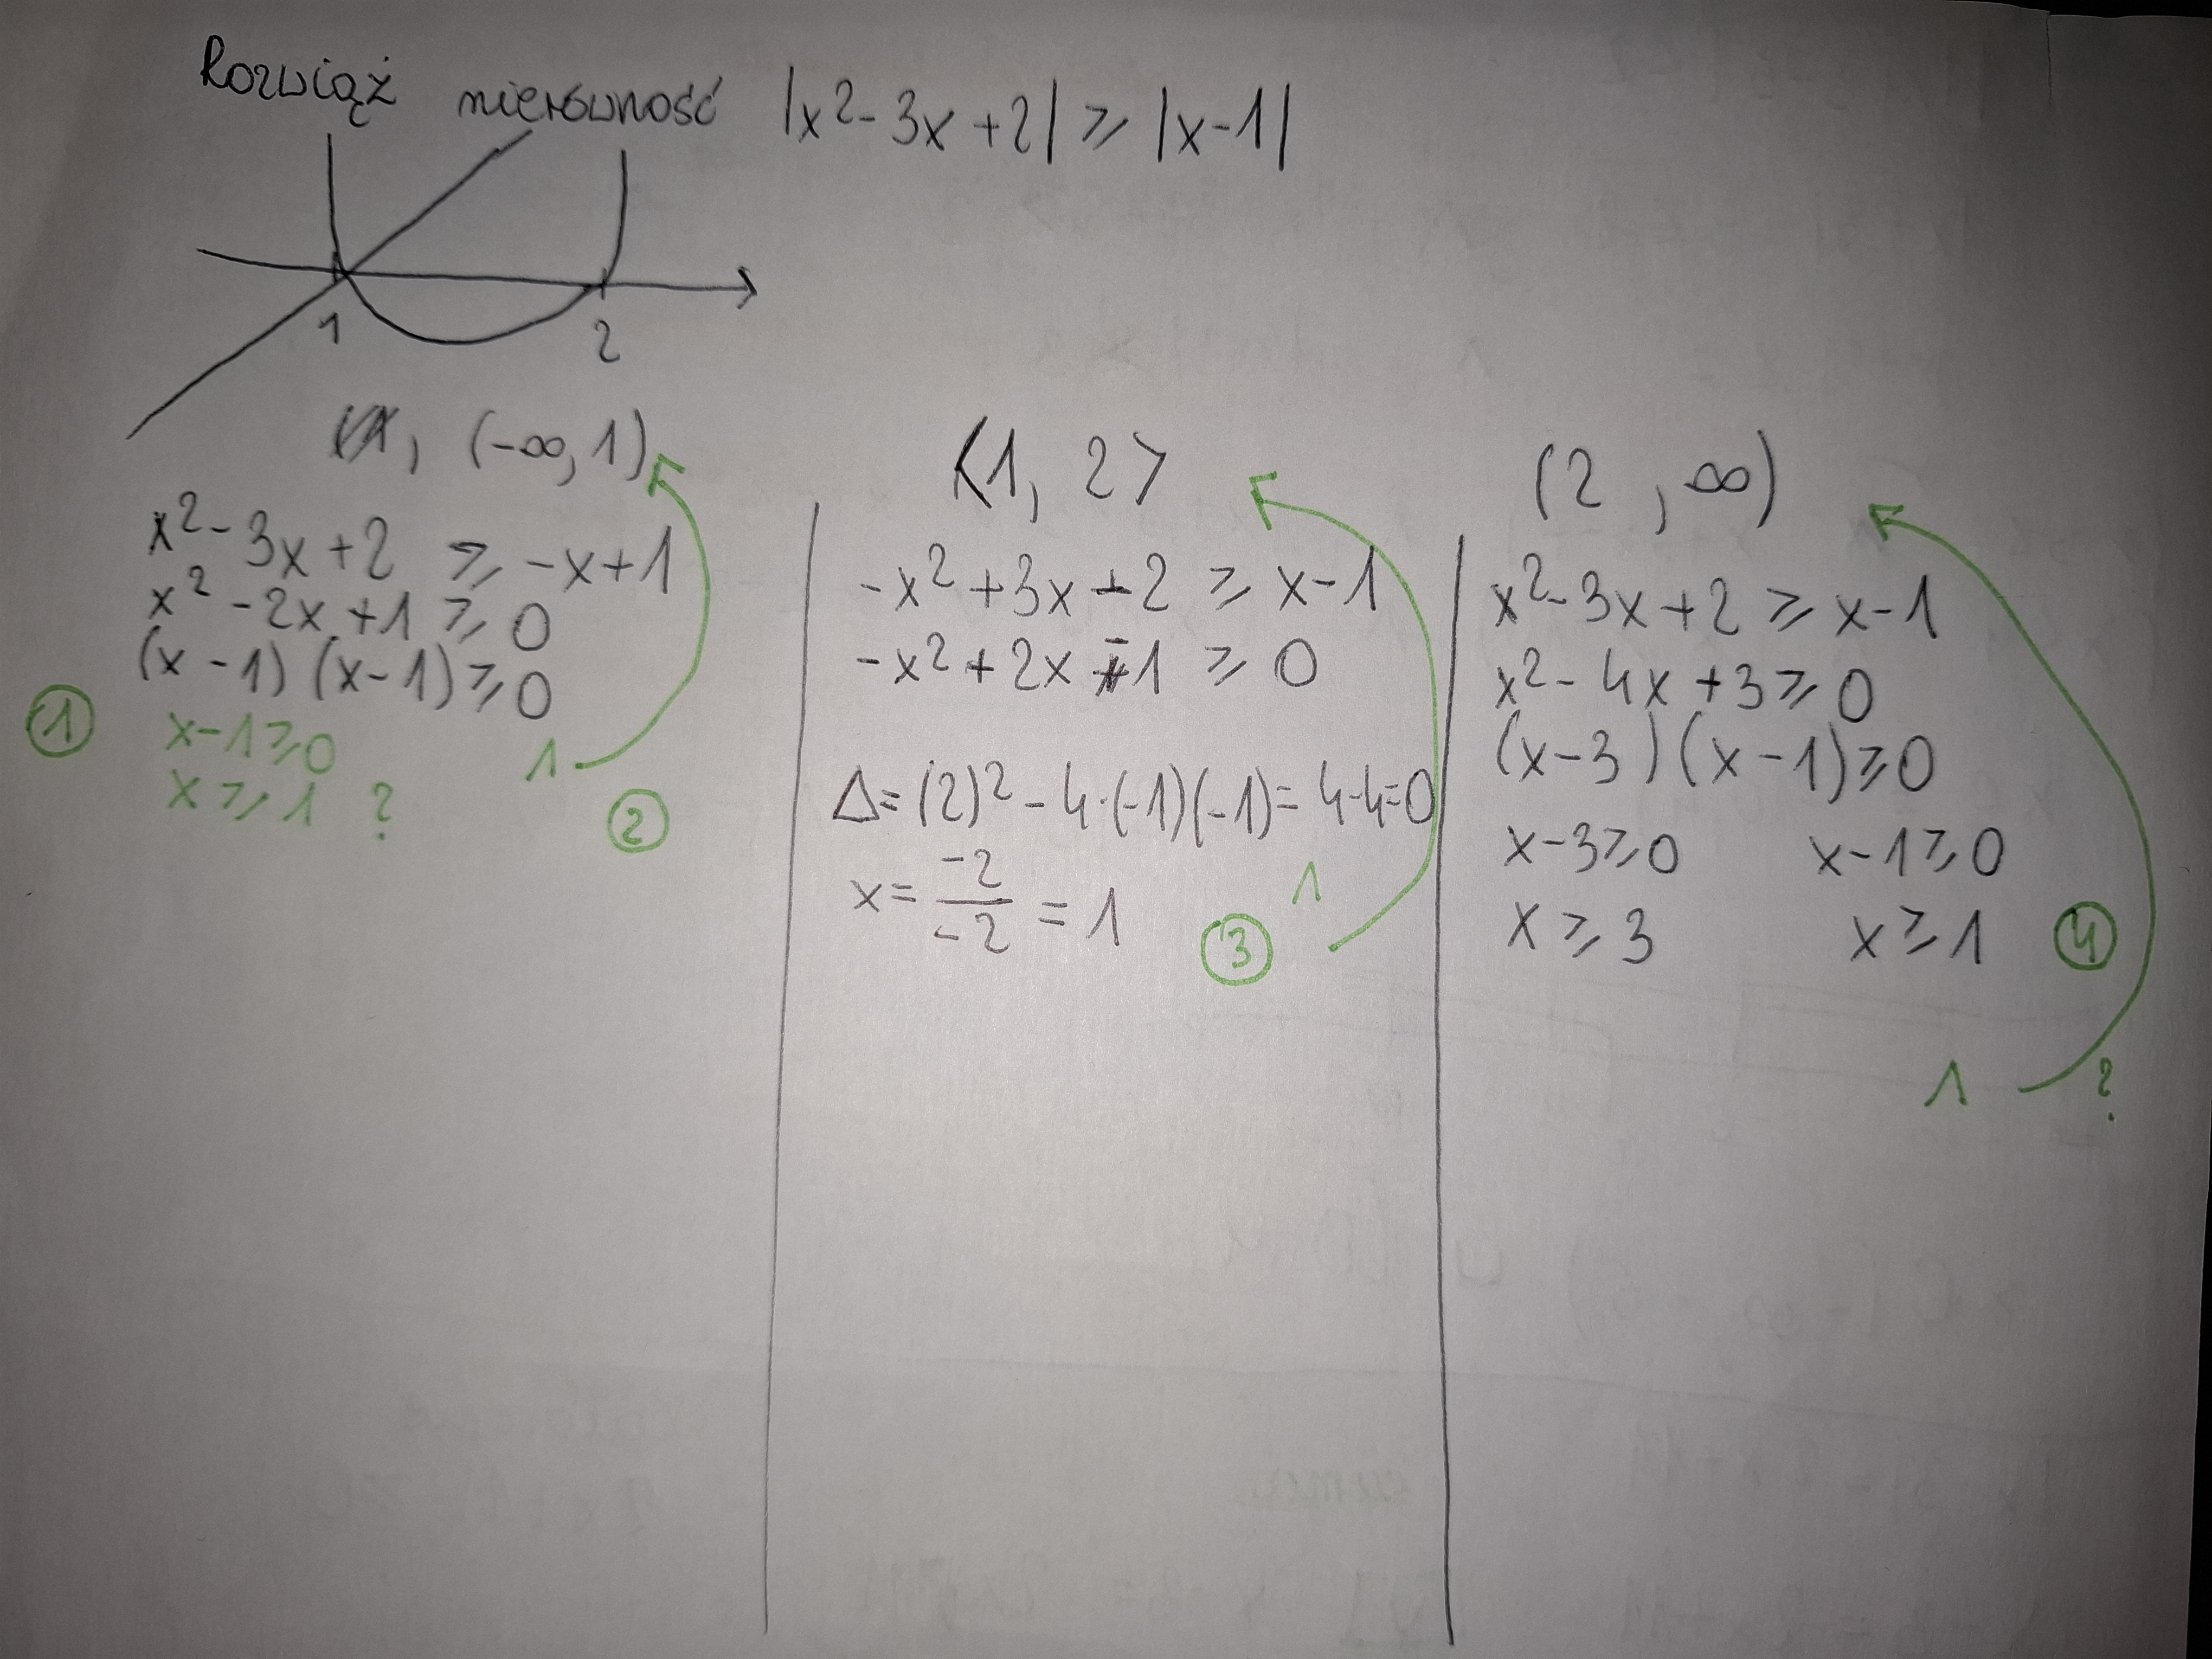 Rozwiąż nierówność |x²-3x+2| ⩾ |x-1|
1 2
, (-∞, 1)
x²-3x+2 ⩾ -x+1
x²-2x+1 ⩾ 0
(x-1)(x-1) ⩾ 0
① x-1⩾0
x⩾1 ?
1
②
<1, 2>
-x²+3x-2 ⩾ x-1
-x²+2x-1 ⩾ 0
Δ=(2)²-4·(-1)(-1)=4-4=0
x = -2/-2 = 1
1
③
(2, ∞)
x²-3x+2 ⩾ x-1
x²-4x+3⩾0
(x-3)(x-1)⩾0
x-3⩾0 x-1⩾0
x⩾3 x⩾1 ④
1 ?